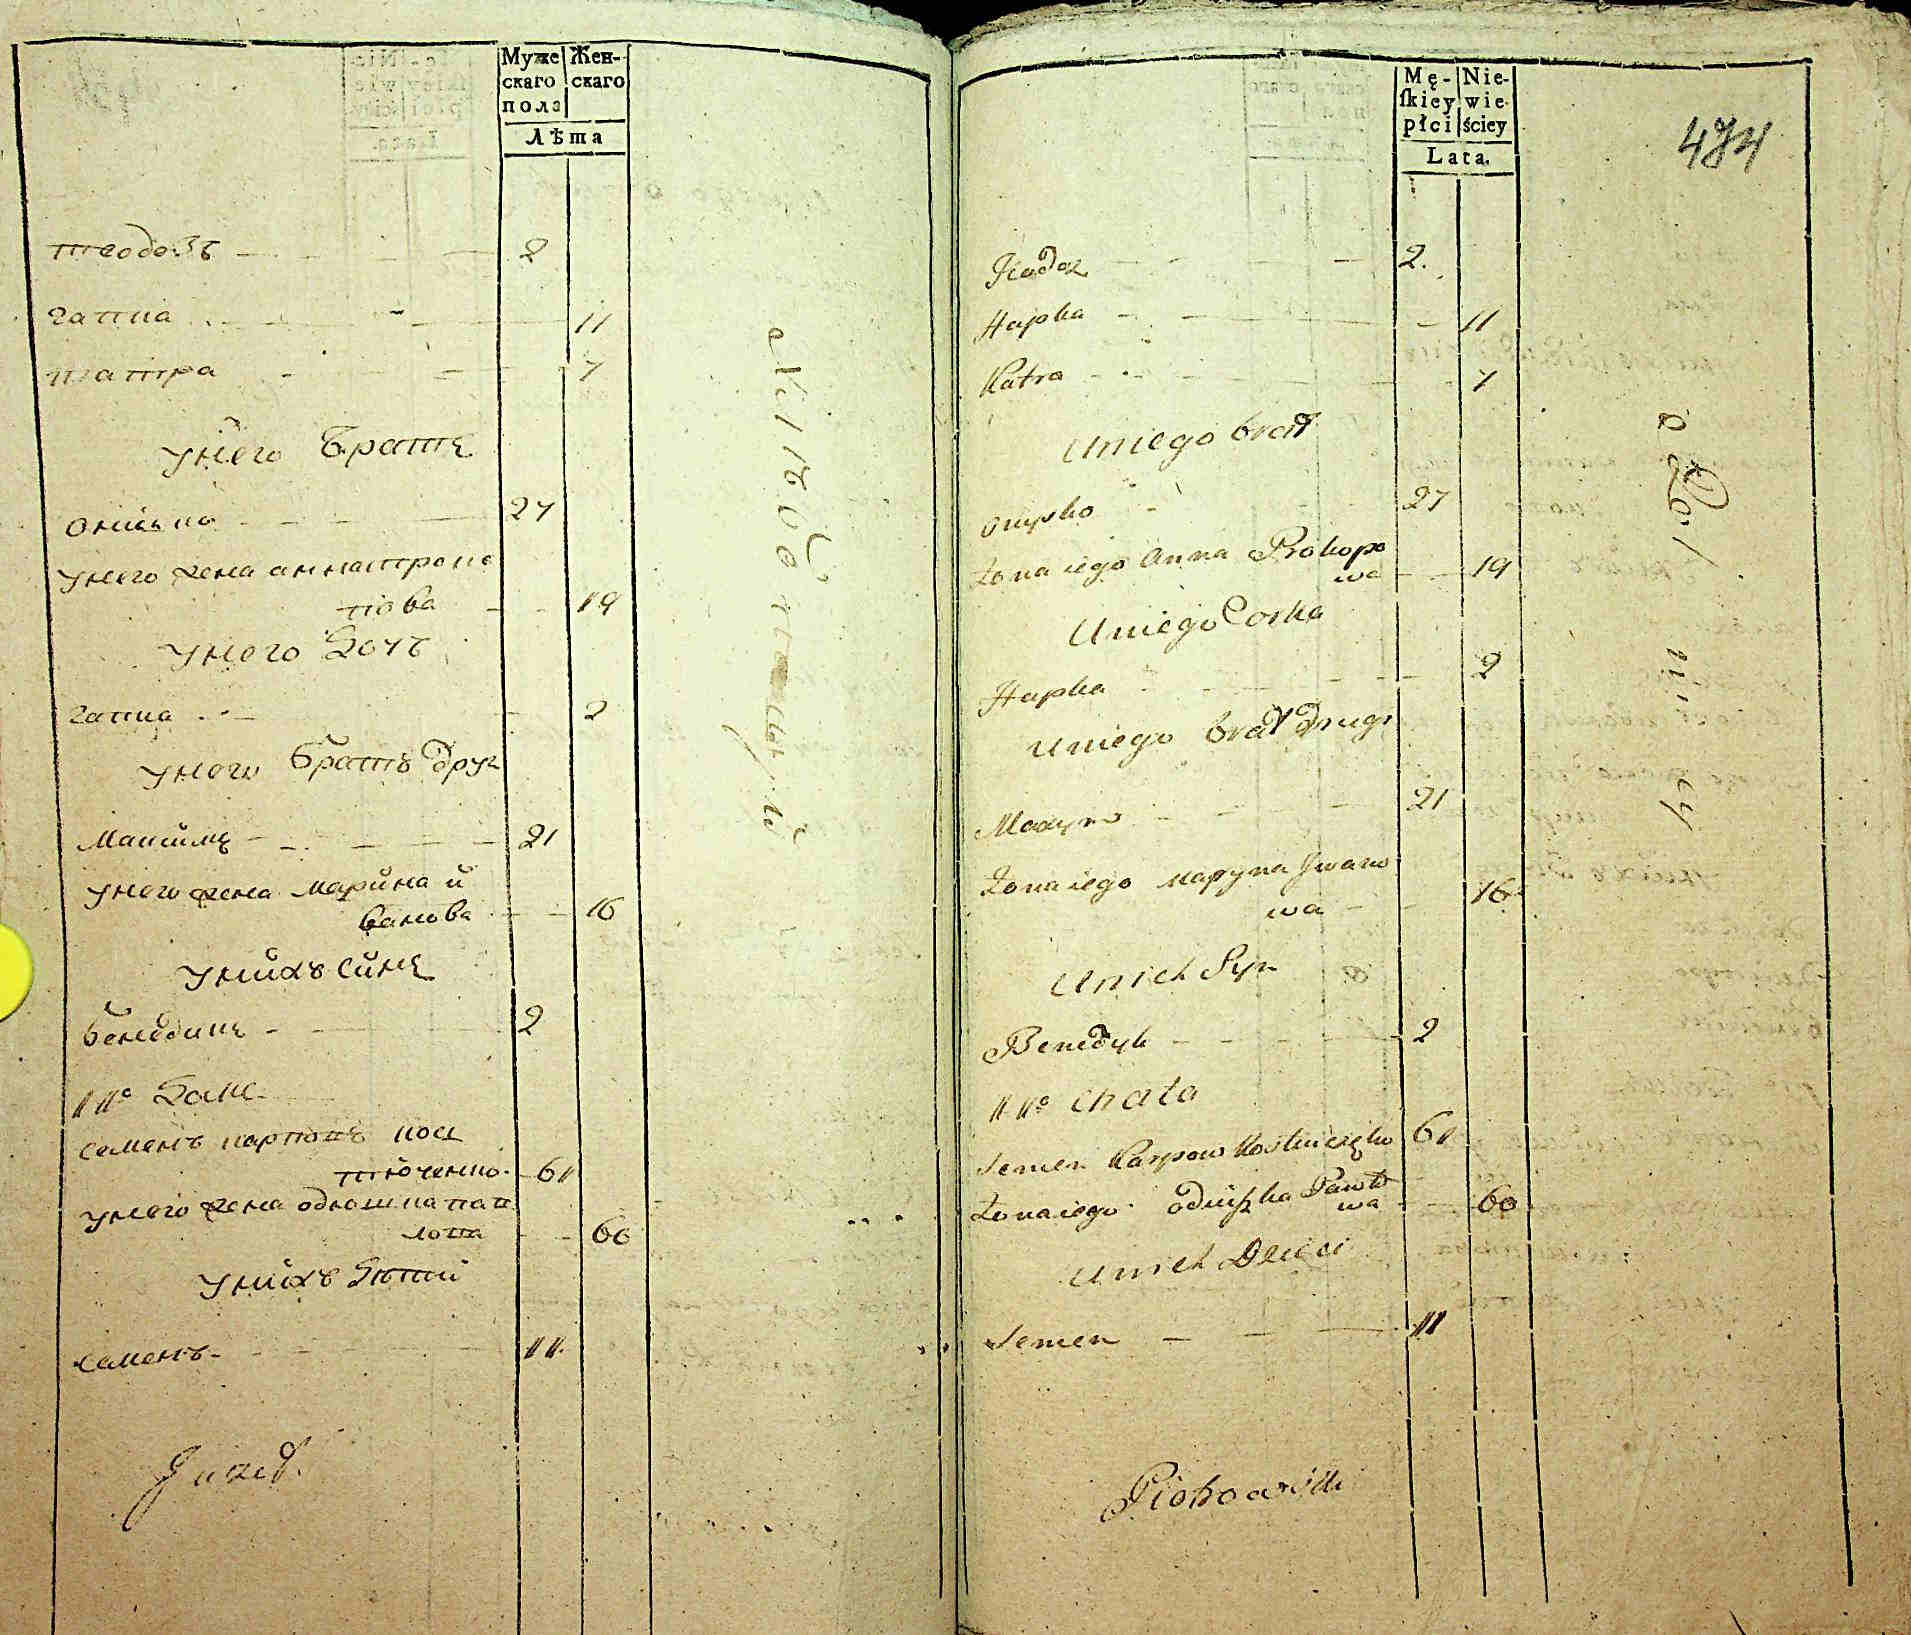 Муже
скаго
пола
Жен-
скаго
Лѣта
теодозъ 2
гапка 11
катра 7
унего братъ
онисько 27
унего жена анна проко
пова 19
унего дочъ
гапка 2
унего братъ друг
максимъ 21
унего жена марина й
ванова 16
унихъ синъ
бенедикъ 2
11º
семенъ карповъ кос
тюченко 61
унего жена одношка пав
лова 60
унихъ дѣти
семенъ 11
Mę-
ſkiey
płci
Nie-
wie-
ściey
Lata.
474
2.
Hapka 11
Katra 7
Uniego brat
onysko 27
żona iego Anna Prokopo
wa 19
Uniego Corka
Hapka 2
Uniego brat Drugi
Maxym 21
żona iego maryna Jwano
wa 16
Unich Syn
Benedyk 2
11º Chata
Semen Karpow 61
żona iego Pawło
wa 60
Unich Dzieci
Semen 11
Piotrowski